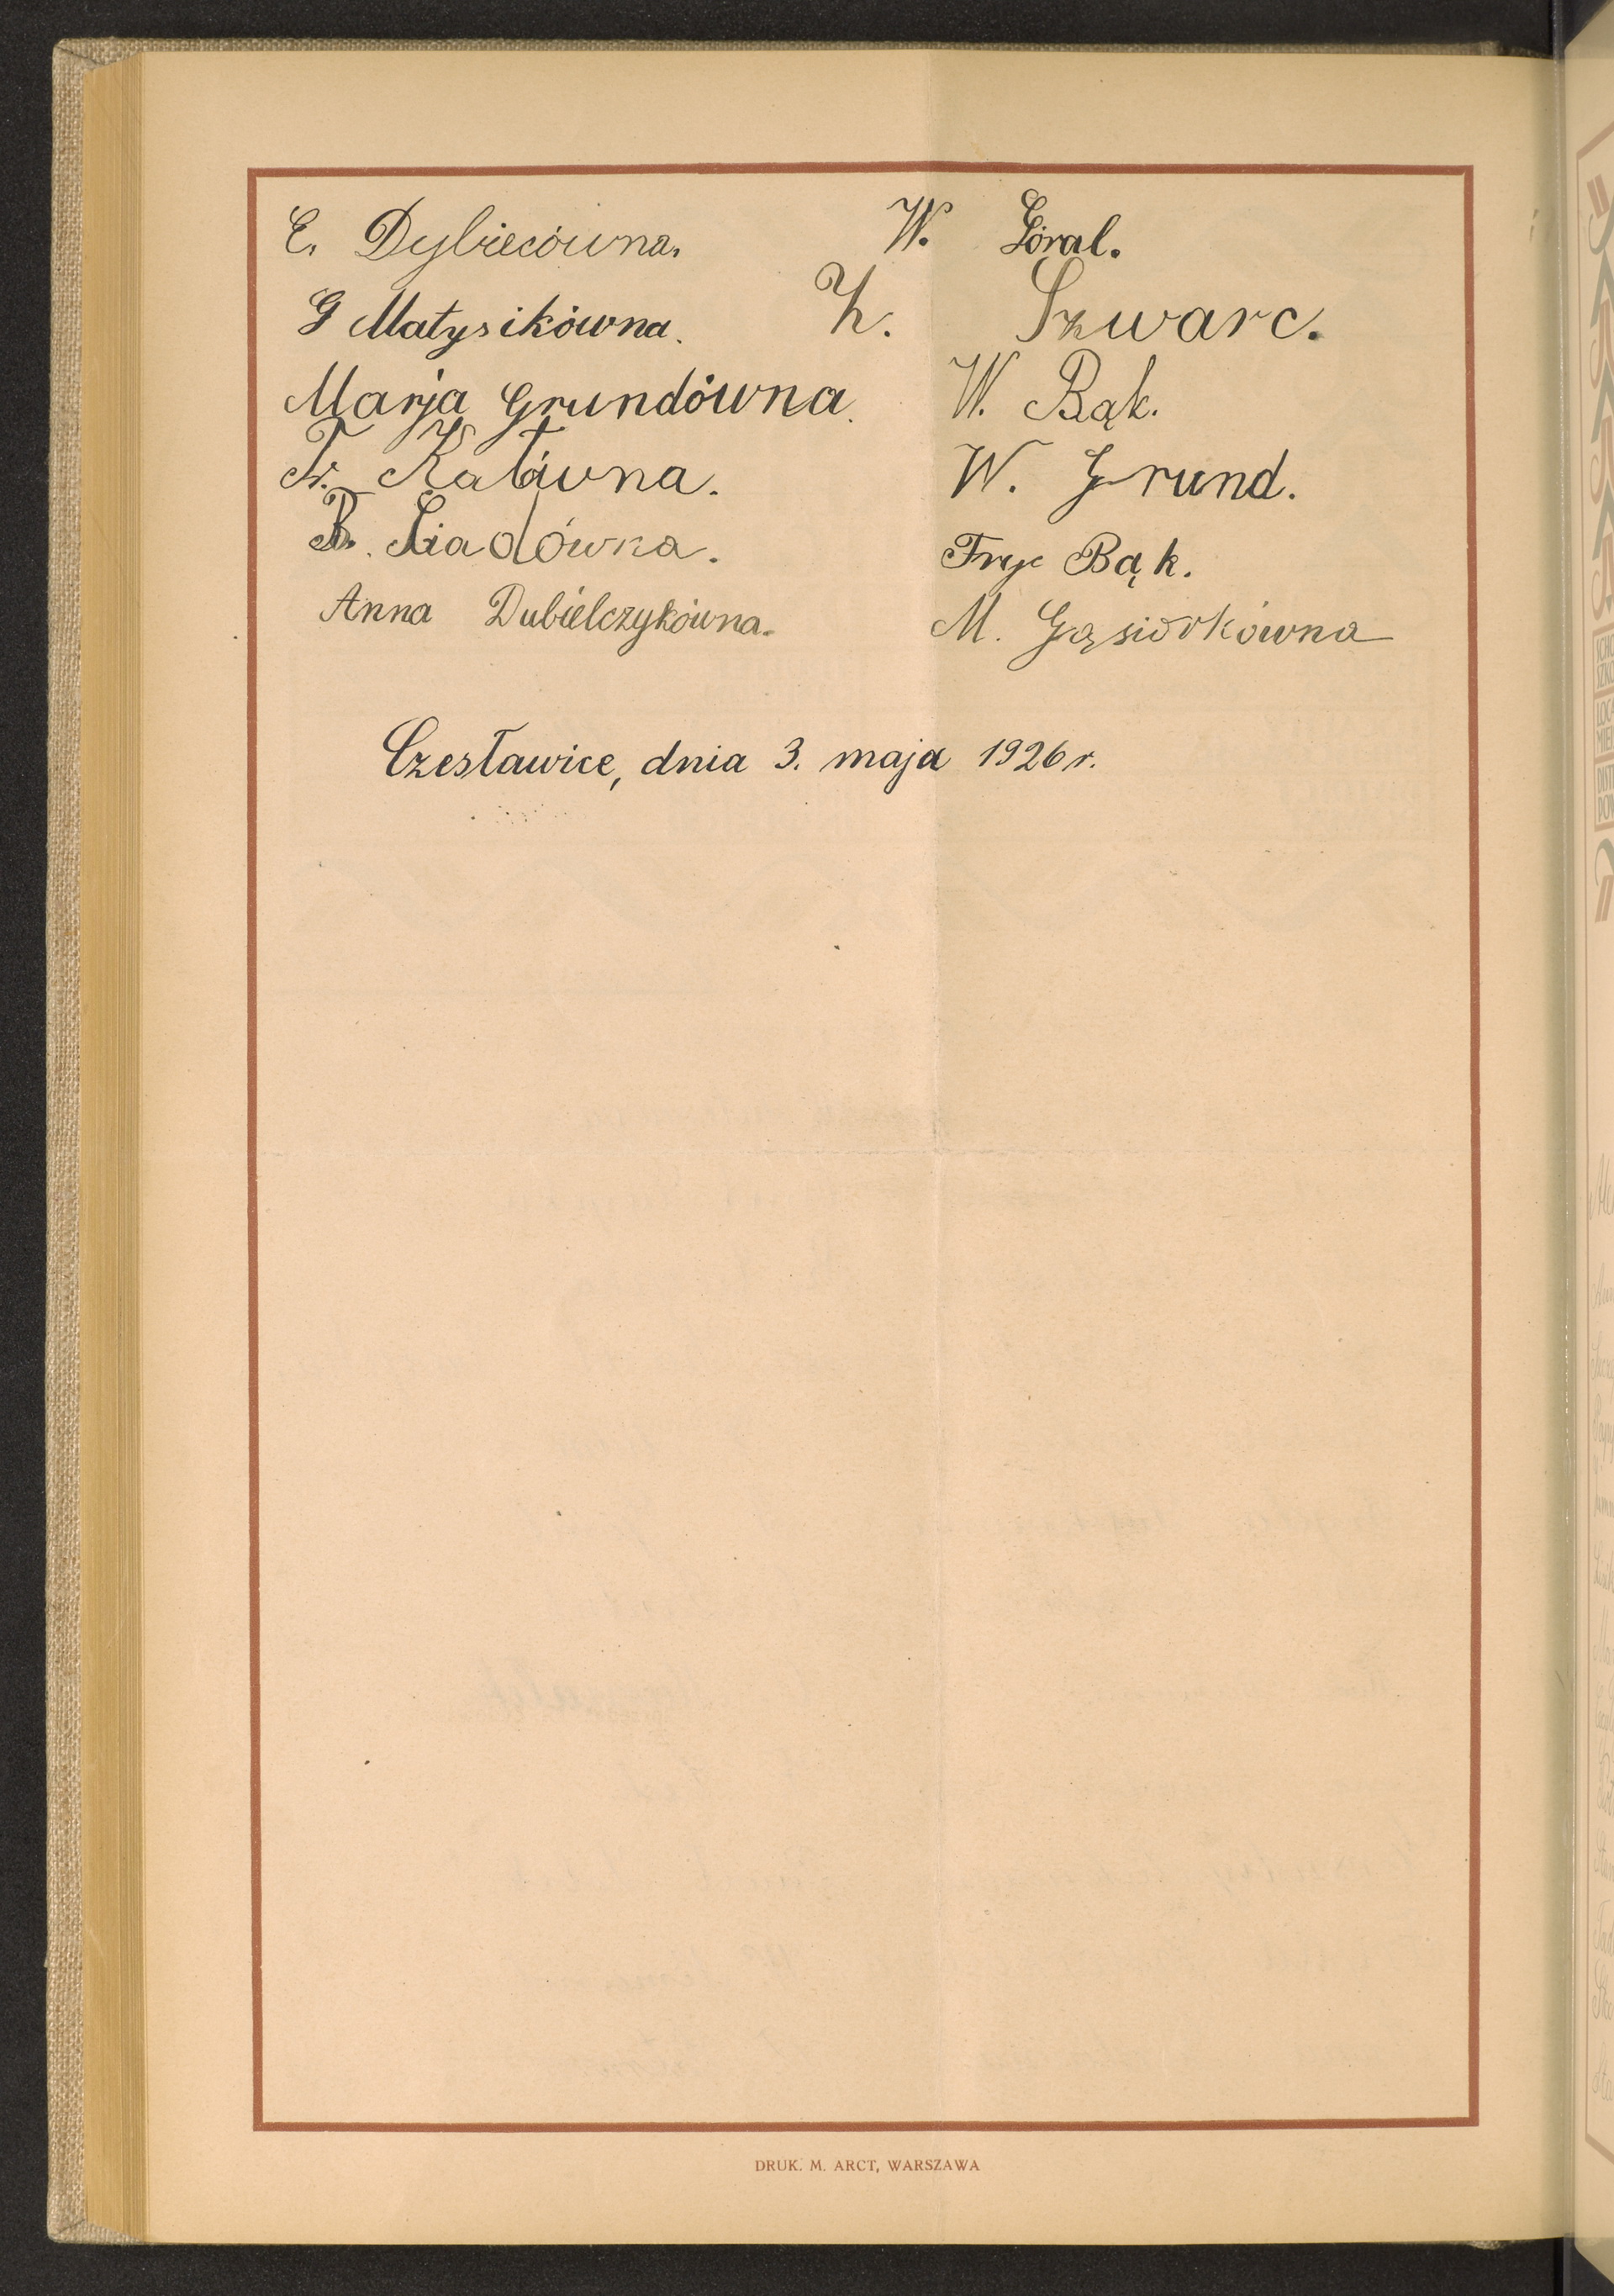 E. Dybiecówna.
G Matysikówna.
Marja Grundówna.
Fr. Kałówna.
B. Siadówka.
Anna Dubielczykówna.
W. Góral.
H. Szwarc.
W. Bąk.
W. Grund.
Fryc Bąk.
M. Gąsiorkówna
Czesławice, dnia 3. maja 1926 r.
DRUK. M. ARCT, WARSZAWA